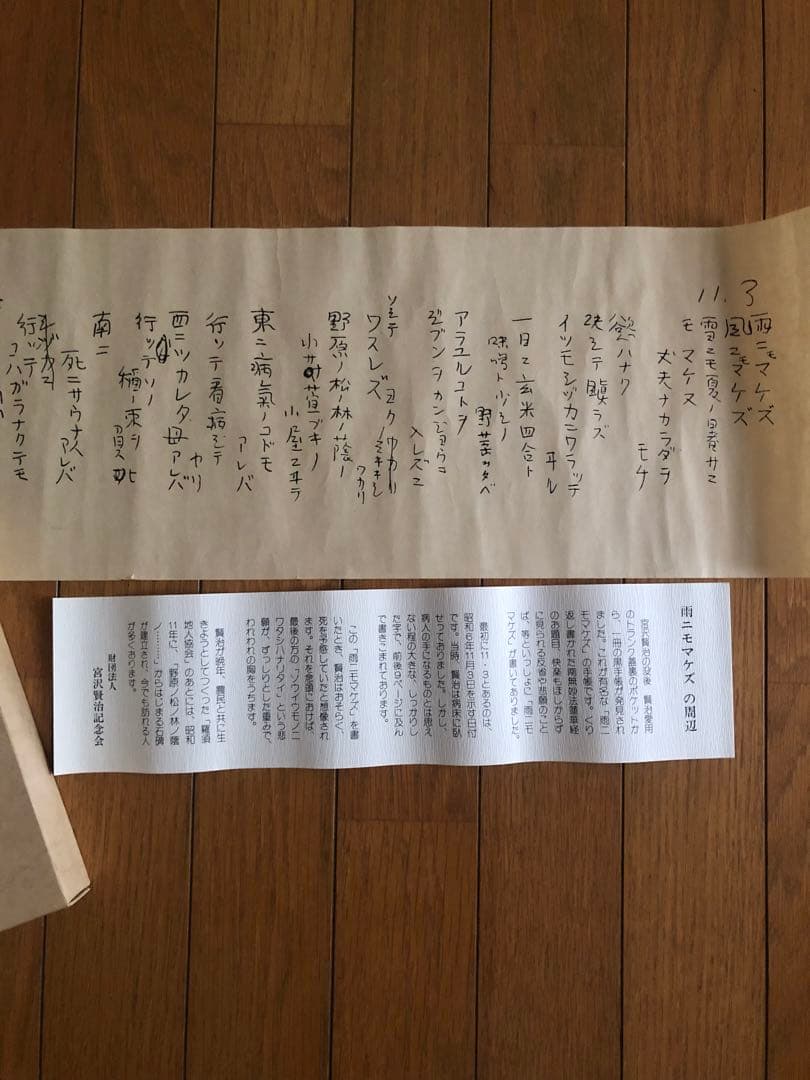 11.3
雨ニモマケズ
風ニモマケズ
雪ニモ夏ノ暑サニ
モマケヌ
丈夫ナカラダヲ
モチ
慾ハナク
決シテ瞋ラズ
イツモシヅカニワラッテ
ヰル
一日ニ玄米四合ト
味噌ト少シノ
野菜ヲタベ
アラユルコトヲ
ジブンヲカンジョウニ
入レズニ
ヨクミキキシ
ワカリ
ソシテ
ワスレズ
野原ノ松ノ林ノ蔭ノ
小サナ萓ブキノ
小屋ニヰテ
東ニ病気ノコドモ
アレバ
行ッテ看病シテ
ヤリ
西ニツカレタ母アレバ
行ッテソノ
稲ノ束ヲ
負ヒ
南ニ
死ニサウナ人
アレバ
行ッテ
コハガラナクテモ
雨ニモマケズ の周辺
宮沢賢治の没後 賢治愛用
のトランク蓋裏のポケットか
ら、一冊の黒手帳が発見され
ました。これが有名な「雨ニ
モマケズ」の手帳です。くり
返し書かれた南無妙法蓮華経
のお題目、快楽もほしからず
に見られる反省や悲願のこと
ば、等といっしょに「雨ニモ
マケズ」が書いてありました。
最初に11・3とあるのは、
昭和6年11月3日を示す日付
です。当時、賢治は病床に臥
せっておりました。しかし、
病人の手になるものとは思え
ない程の大きな、しっかりし
た字で、前後9ページに及ん
で書きこまれております。
この「雨ニモマケズ」を書
いたとき、賢治はおそらく、
死を予感していたと想像され
ます。それを念頭におけば、
最後の方の「ソウイウモノニ
ワタシハナリタイ」という悲
願が、ずっしりとした重みで、
われわれの胸をうちます。
賢治が晩年、農民と共に生
きようとしてつくった「羅須
地人協会」のあとには、昭和
11年に、「野原ノ松ノ林ノ蔭
ノ………」からはじまる石碑
が建立され、今でも訪れる人
が多くおります。
財団法人
宮沢賢治記念会